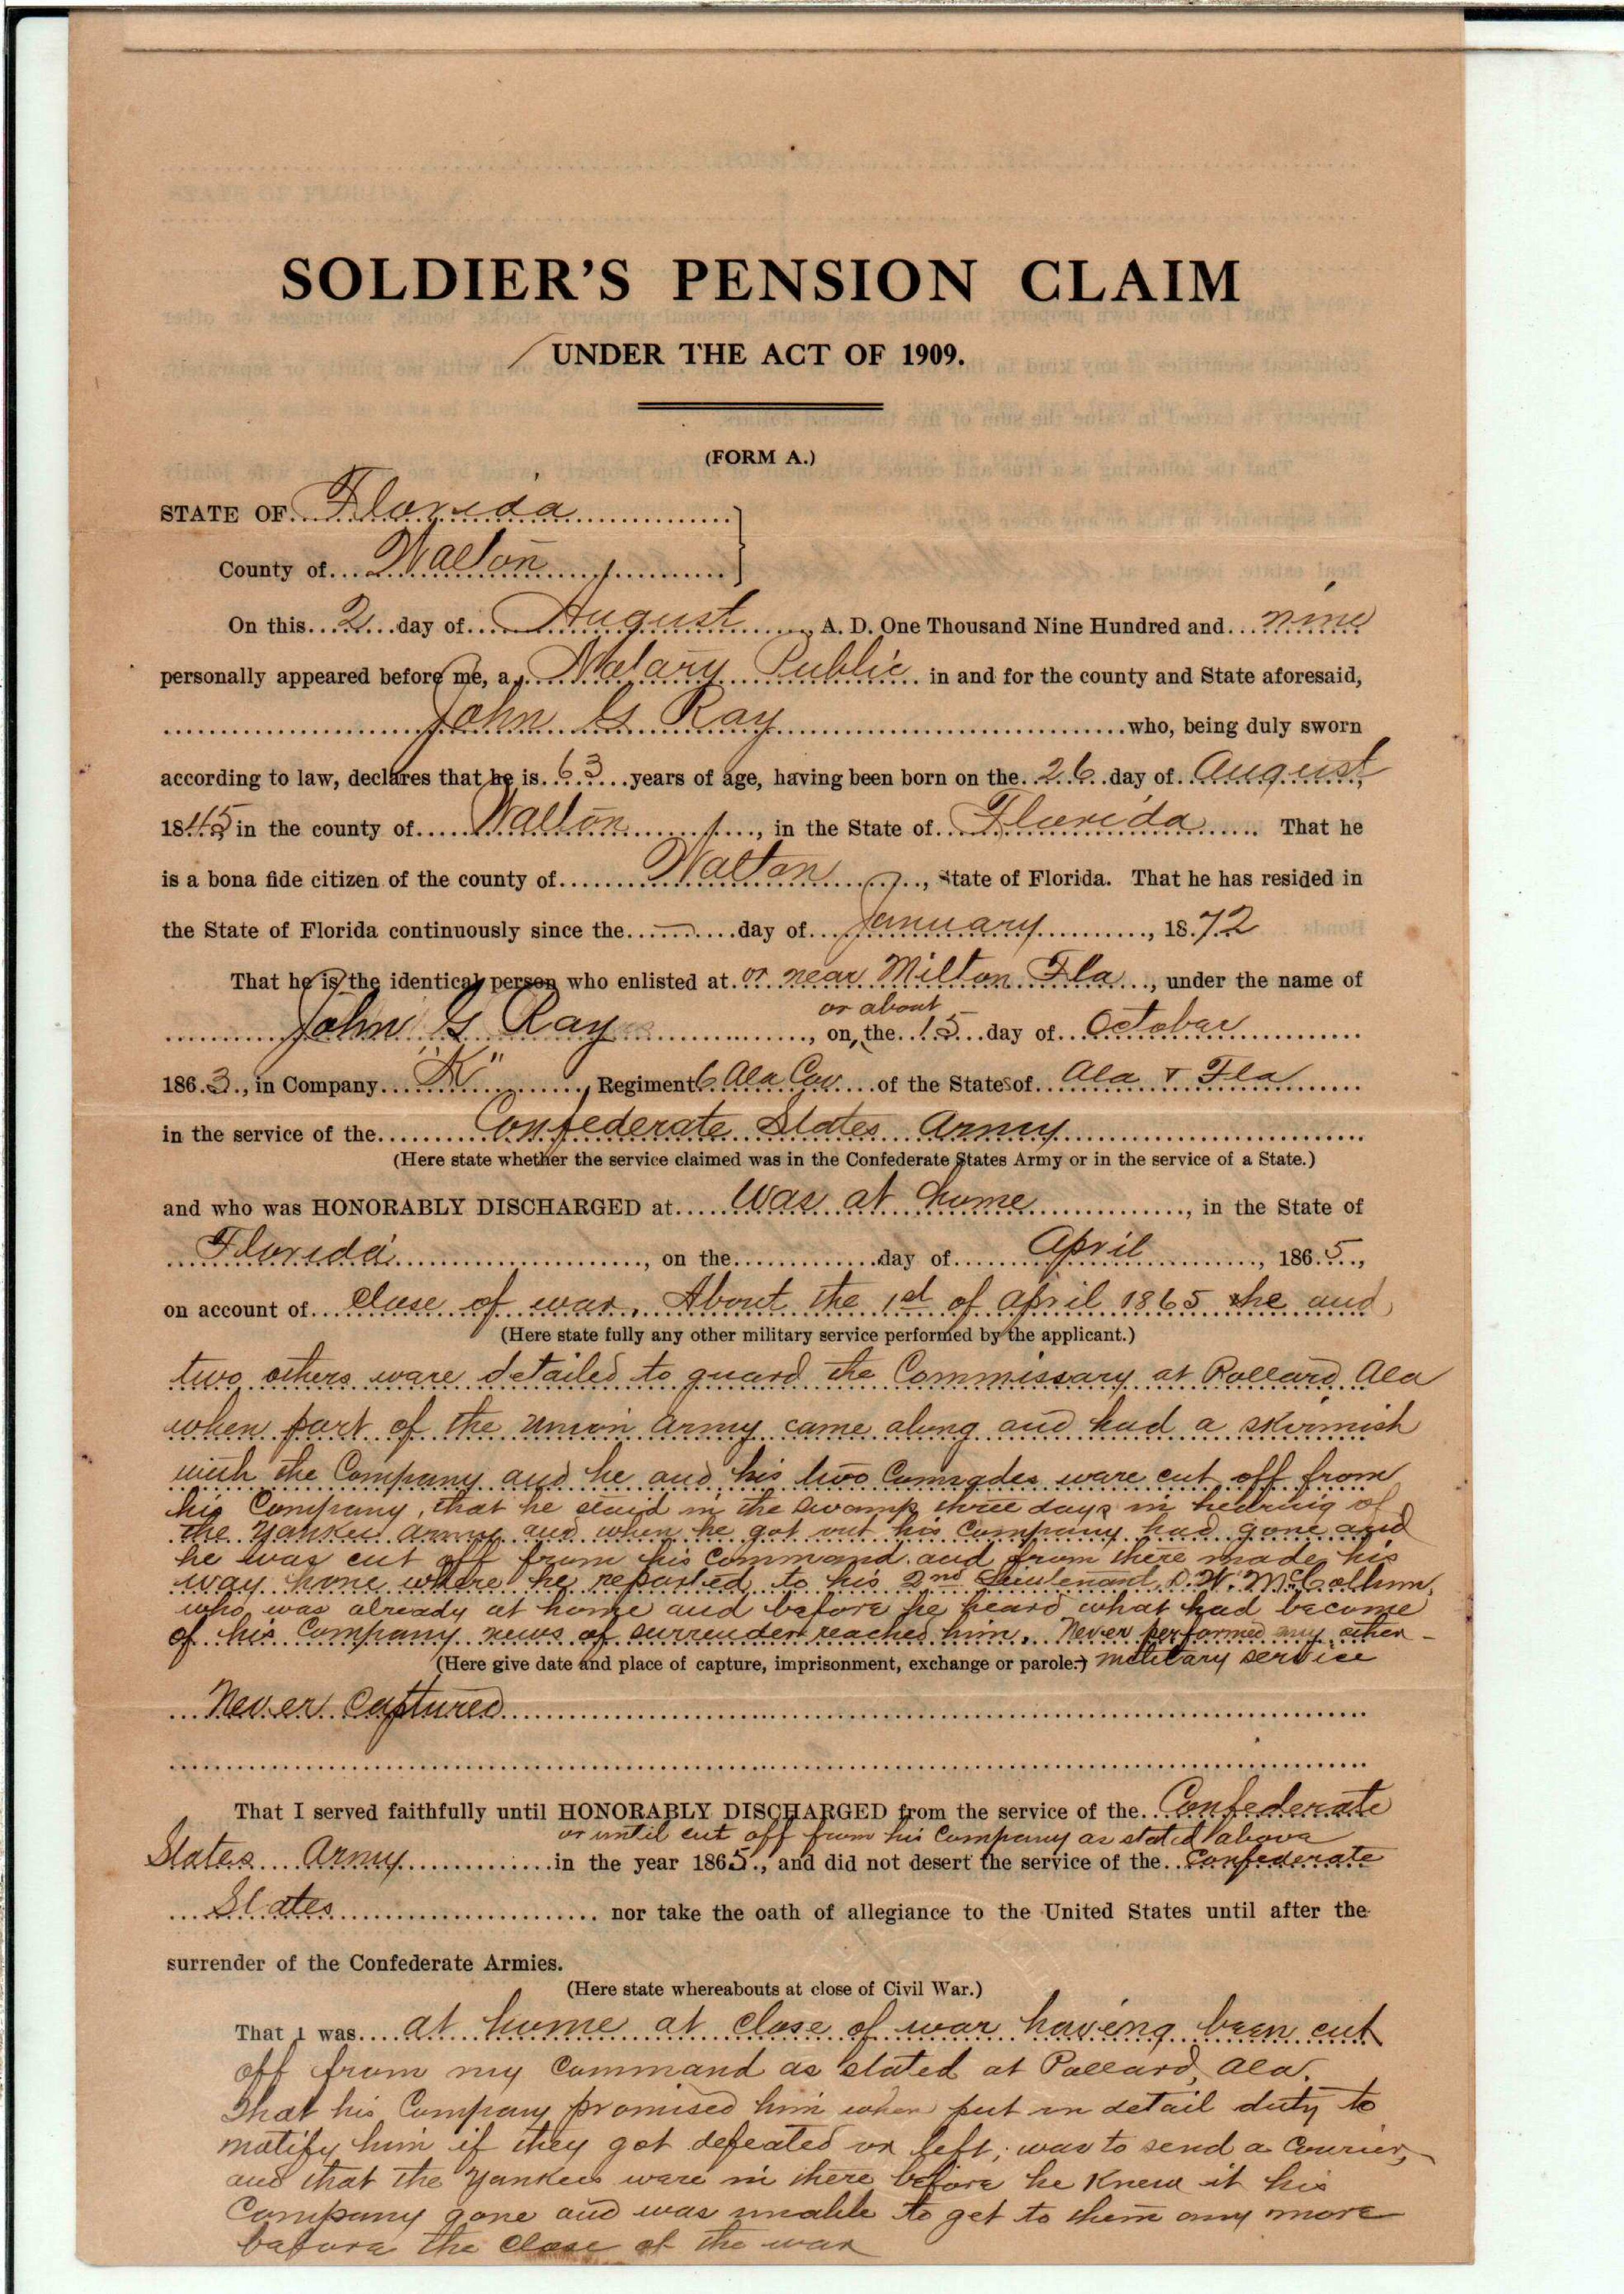 SOLDIER'S PENSION CLAIM
UNDER THE ACT OF 1909.
(FORM A.)
STATE OF Florida
County of Walton
On this 2 day of August, A. D. One Thousand Nine Hundred and nine
personally appeared before me, a Notary Public in and for the county and State aforesaid,
John G Ray who, being duly sworn
according to law, declares that he is 63 years of age, having been born on the 26 day of August
1845 in the county of Walton, in the State of Florida. That he
is a bona fide citizen of the county of Walton, State of Florida. That he has resided in
the State of Florida continuously since the — day of January, 1872
That he is the identical person who enlisted at or near Milton Fla, under the name of
or about
John G Ray, on the 15 day of October
1863, in Company "K", Regiment 6 Ala Cav of the States of Ala & Fla
in the service of the Confederate States Army
(Here state whether the service claimed was in the Confederate States Army or in the service of a State.)
and who was HONORABLY DISCHARGED at Was at home, in the State of
Florida, on the day of April, 1865,
on account of close of war. About the 1st of April 1865 he and
(Here state fully any other military service performed by the applicant.)
two others ware detailed to guard the Commissary at Pollard Ala
when part of the union army came along and had a skirmish
with the Company and he and his two Comrades ware cut off from
his Company, that he staid in the swamp three days in hearing of
the Yankee army and when he got out his Company had gone and
he was cut off from his Command and from there made his
way home where he reported to his 2nd Lieutenant, D. W. McCollum,
who was already at home and before he heard what had become
of his Company news of surrender reached him. Never performed any other
(Here give date and place of capture, imprisonment, exchange or parole.) military service
Never Captured
That I served faithfully until HONORABLY DISCHARGED from the service of the Confederate
or until cut off from his Company as stated above
States Army in the year 1865, and did not desert the service of the Confederate
States nor take the oath of allegiance to the United States until after the
surrender of the Confederate Armies.
(Here state whereabouts at close of Civil War.)
That I was at home at close of war having been cut
off from my Command as stated at Pollard, Ala.
That his Company promised him when put on detail duty to
notify him if they got defeated or left, was to send a Courier,
and that the Yankees ware in there before he knew it his
Company gone and was unable to get to them any more
before the close of the war